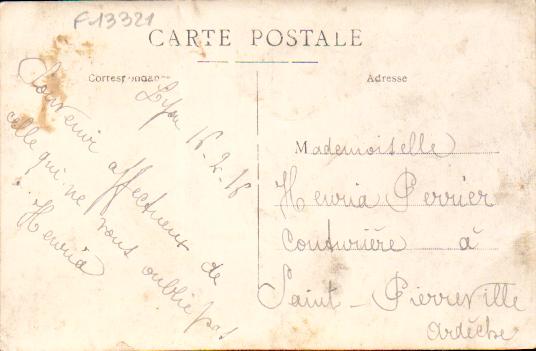 F-13321
CARTE POSTALE
Correspondance
Adresse
Lyon 16-2-16
Souvenir affectueux de
celle qui ne vous oublie pas
Henria
Mademoiselle
Henria Perrier
Couturière à
Saint-Pierreville
Ardèche